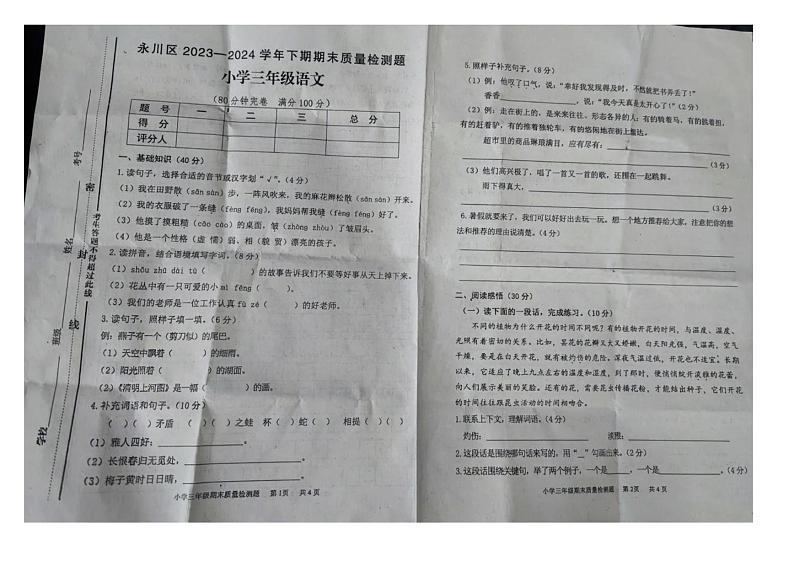 永川区 2023—2024 学年下期期末质量检测题
小学三年级语文
（80分钟完卷 满分100分）
题 号 一 二 三 总 分
得 分
评分人
一、基础知识（40分）
1.读句子，选择合适的音节或汉字划“√”。（4分）
（1）我在田野散（sǎn sàn）步，一阵风吹来，我的麻花辫松散（sǎn sàn）开来。
（2）我的衣服破了一条缝（fèng féng），我妈妈帮我缝（fèng féng）好了。
（3）他摸了摸粗糙（cāo cào）的桌面，皱（zhòng zhòu）了皱眉头。
（4）他是一个性格（虚 懦）弱、相（貌 贸）漂亮的孩子。
2.读拼音，结合语境填写字词。（8分）
（1）shǒu zhū dài tù（ ）的故事告诉我们不要等好事从天上掉下来。
（2）花丛中有一只可爱的小 mì fēng（ ）。
（3）我们的老师是一位工作认真 fù zé（ ）的好老师。
3.读句子，照样子填一填。（6分）
例：燕子有一个（剪刀似）的尾巴。
（1）天空中飘着（ ）的细雨。
（2）阳光照着（ ）的湖面。
（2）《清明上河图》是一幅（ ）的画。
4.补充词语和句子。（10分）
（ ）（ ）矛盾 （ ）（ ）之蛙 杯（ ）蛇（ ） 相提（ ）（ ）
（1）雅人四好：
（2）长恨春归无见处，
（3）梅子黄时日日晴，
小学三年级期末质量检测题 第1页 共4页
学校
班级
姓名
考号
密
封
线
5.照样子补充句子。（8分）
（1）例：他叹了口气，说：“幸好我发现得及时，不然就把书弄丢了！”
香香 ，说：“我今天真是太开心了！”（2分）
（2）例：走在街上的，是来来往往、形态各异的人：有的骑着马，有的挑着担，
有的赶着驴，有的推着独轮车，有的悠闲地在街上溜达。
超市里的商品琳琅满目，应有尽有：
（3分）
（3）他们高兴极了，唱了一首又一首的歌，还围在一起跳舞。
雨下得真大，
（3分）
6.暑假就要来了，我们可以好好出去玩一玩。想一个地方推荐给大家，注意把你的想
法和推荐的理由说清楚。（4分）
二、阅读感悟（30分）
（一）读下面的一段话，完成练习。（10分）
不同的植物为什么开花的时间不同呢？有的植物开花的时间，与温度、湿度、
光照有着密切的关系。比如，昙花的花瓣又大又娇嫩，白天阳光强，气温高，空气
干燥，要是在白天开花，就有被灼伤的危险。深夜气温过低，开花也不适宜。长期
以来，它适应了晚上九点左右的温度和湿度，到了那时，便悄悄绽开淡雅的花蕾，
向人们展示美丽的笑脸。还有的花，需要昆虫传播花粉，才能结出种子，它们开花
的时间往往跟昆虫活动的时间相吻合。
1.联系上下文，理解词语。（4分）
灼伤： 淡雅：
2.这段话是围绕哪句话来写的，用“__”勾画出来。（2分）
3.这段话围绕关键句，举了两个例子，一个是 ，一个是 。（4分）
小学三年级期末质量检测题 第2页 共4页